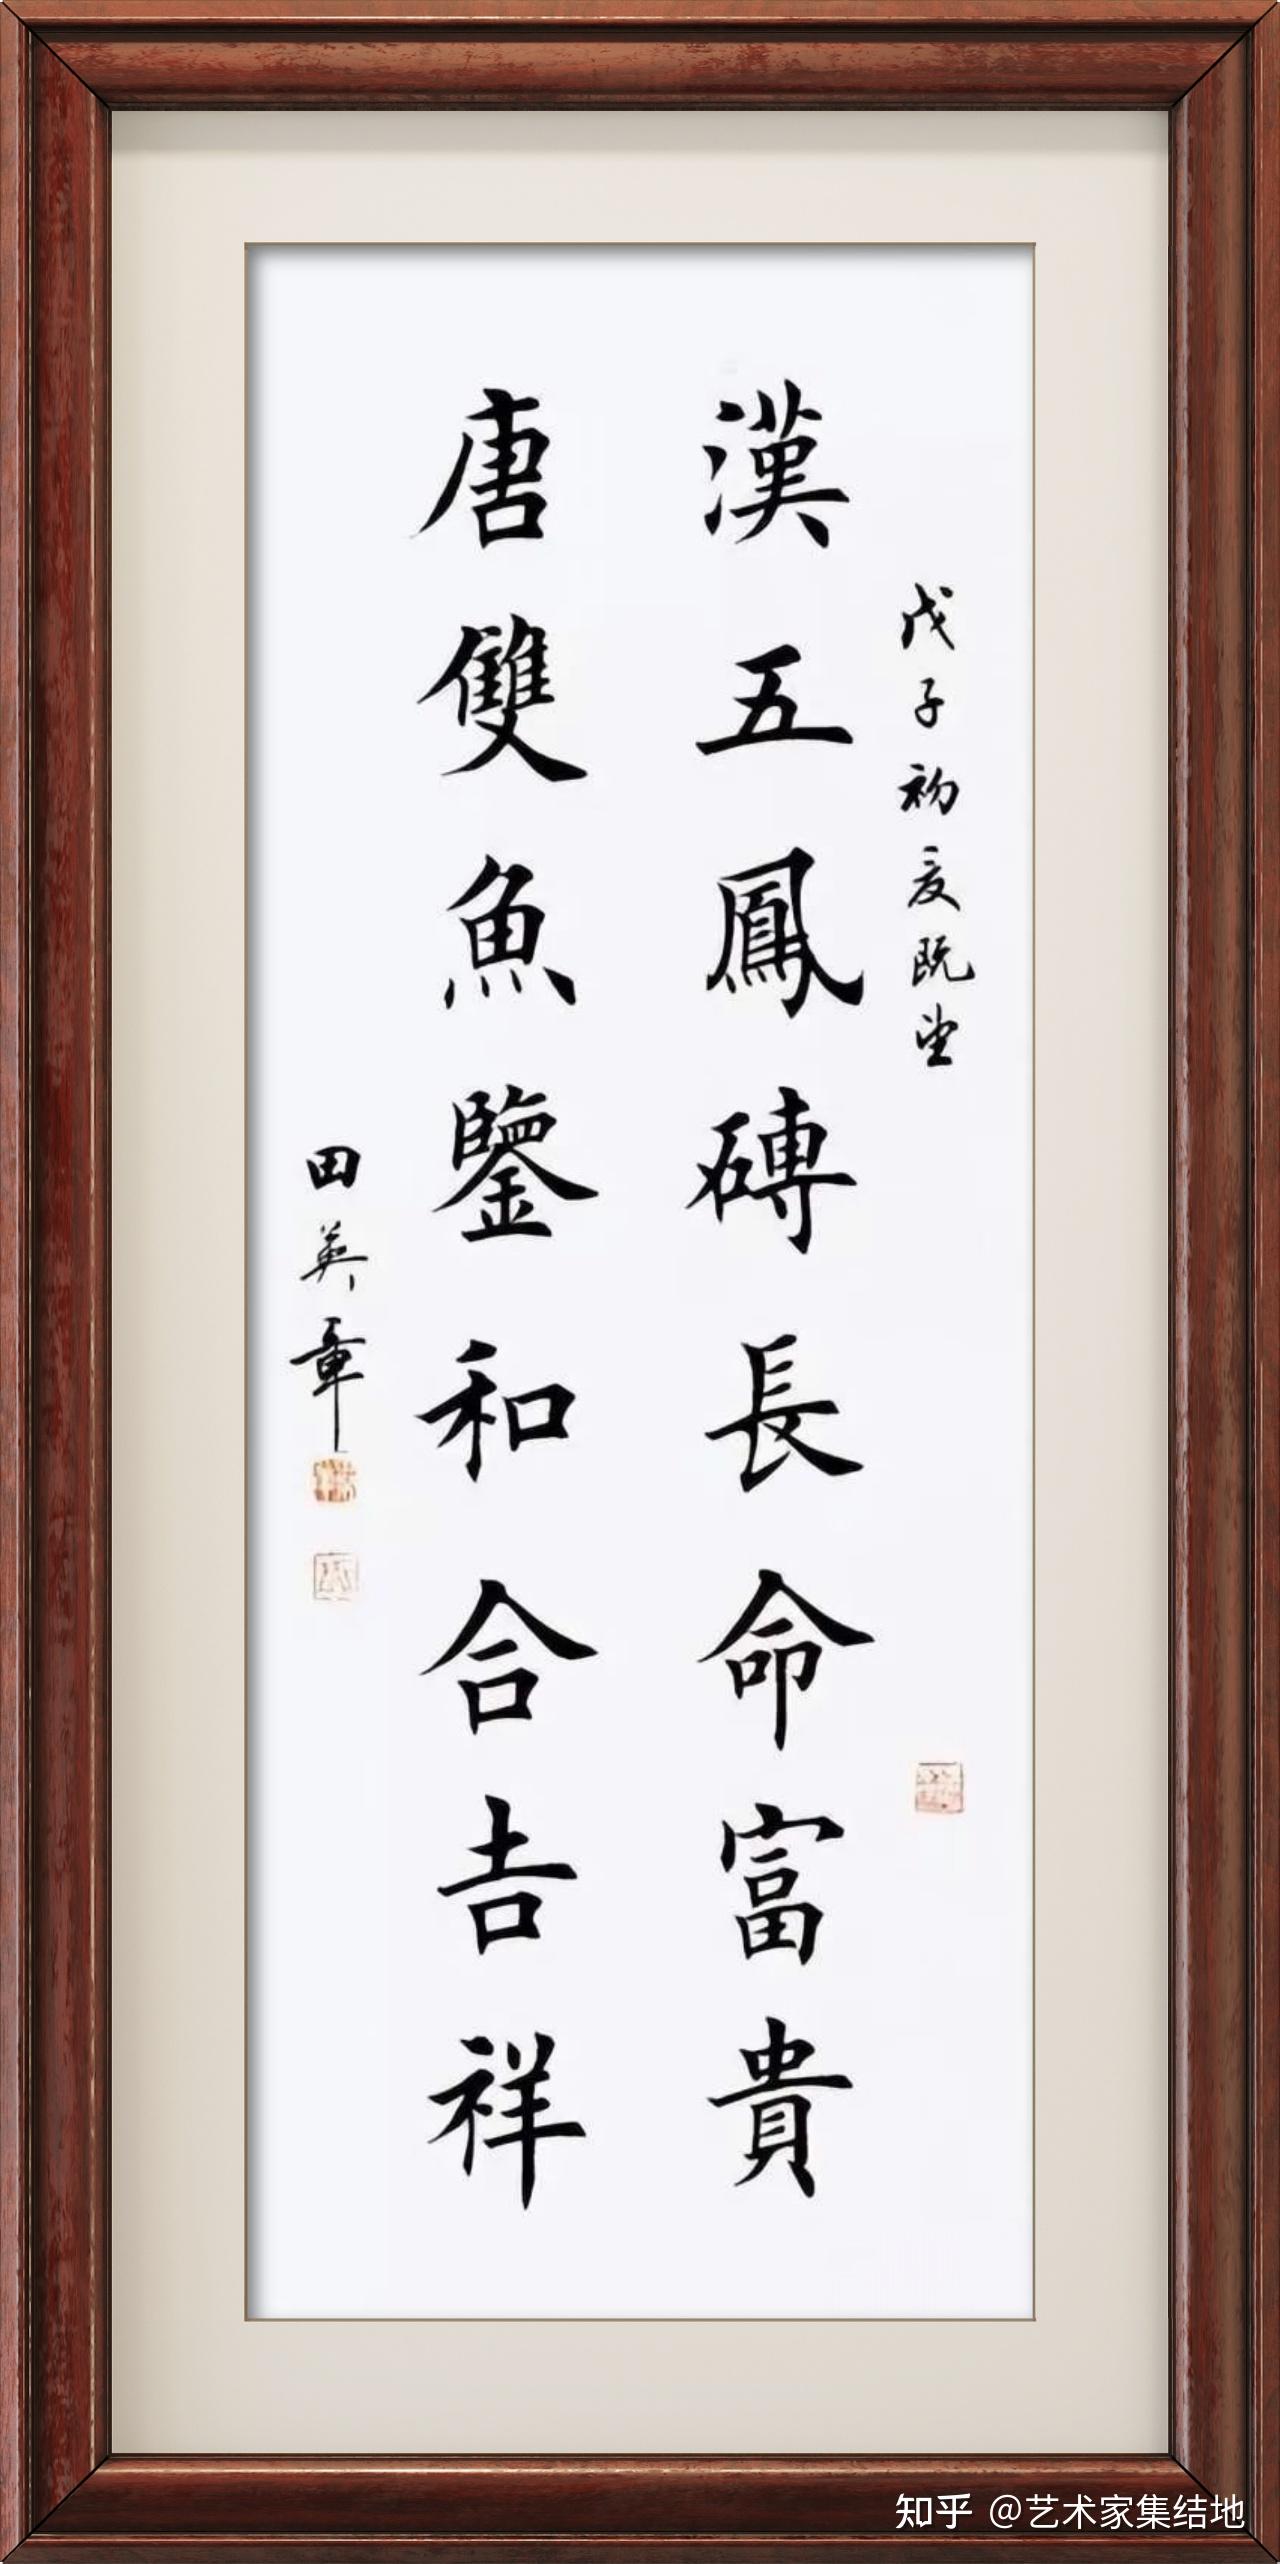 戊子初夏既望
漢五鳳磚長命富貴
唐雙魚鑒和合吉祥
田英章
知乎 @艺术家集结地